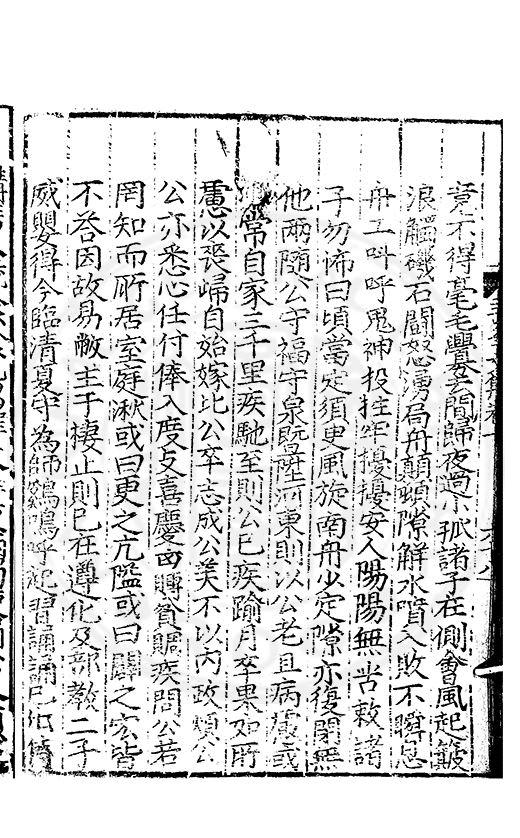 竟不得毫毛釁妄間歸夜過小孤諸子在側會風起簸
浪觸磯石鬬怒湧局舟顛頓隙解水噴入敗不瞬息
舟工叫呼鬼神投拄牢擾擾安人陽陽無苦敕諸
子勿怖曰頃當定須臾風旋南舟少定隙亦復閉無
他兩隨公守福守泉既陞河東則以公老且病慮或
常自家三千里疾馳至則公已疾踰月卒果如所
慮以喪歸自始嫁比公卒志成公美不以內政煩公
公亦悉心任付俸入度支喜慶賻貧賑疾問公若
罔知而所居室庭湫或曰更之亢隘或曰闢之宏皆
不荅因故易敝主于摟止則已在遵化及部教二子
威嬰得今臨清夏守為師鷄鳴呼起習誦誦已